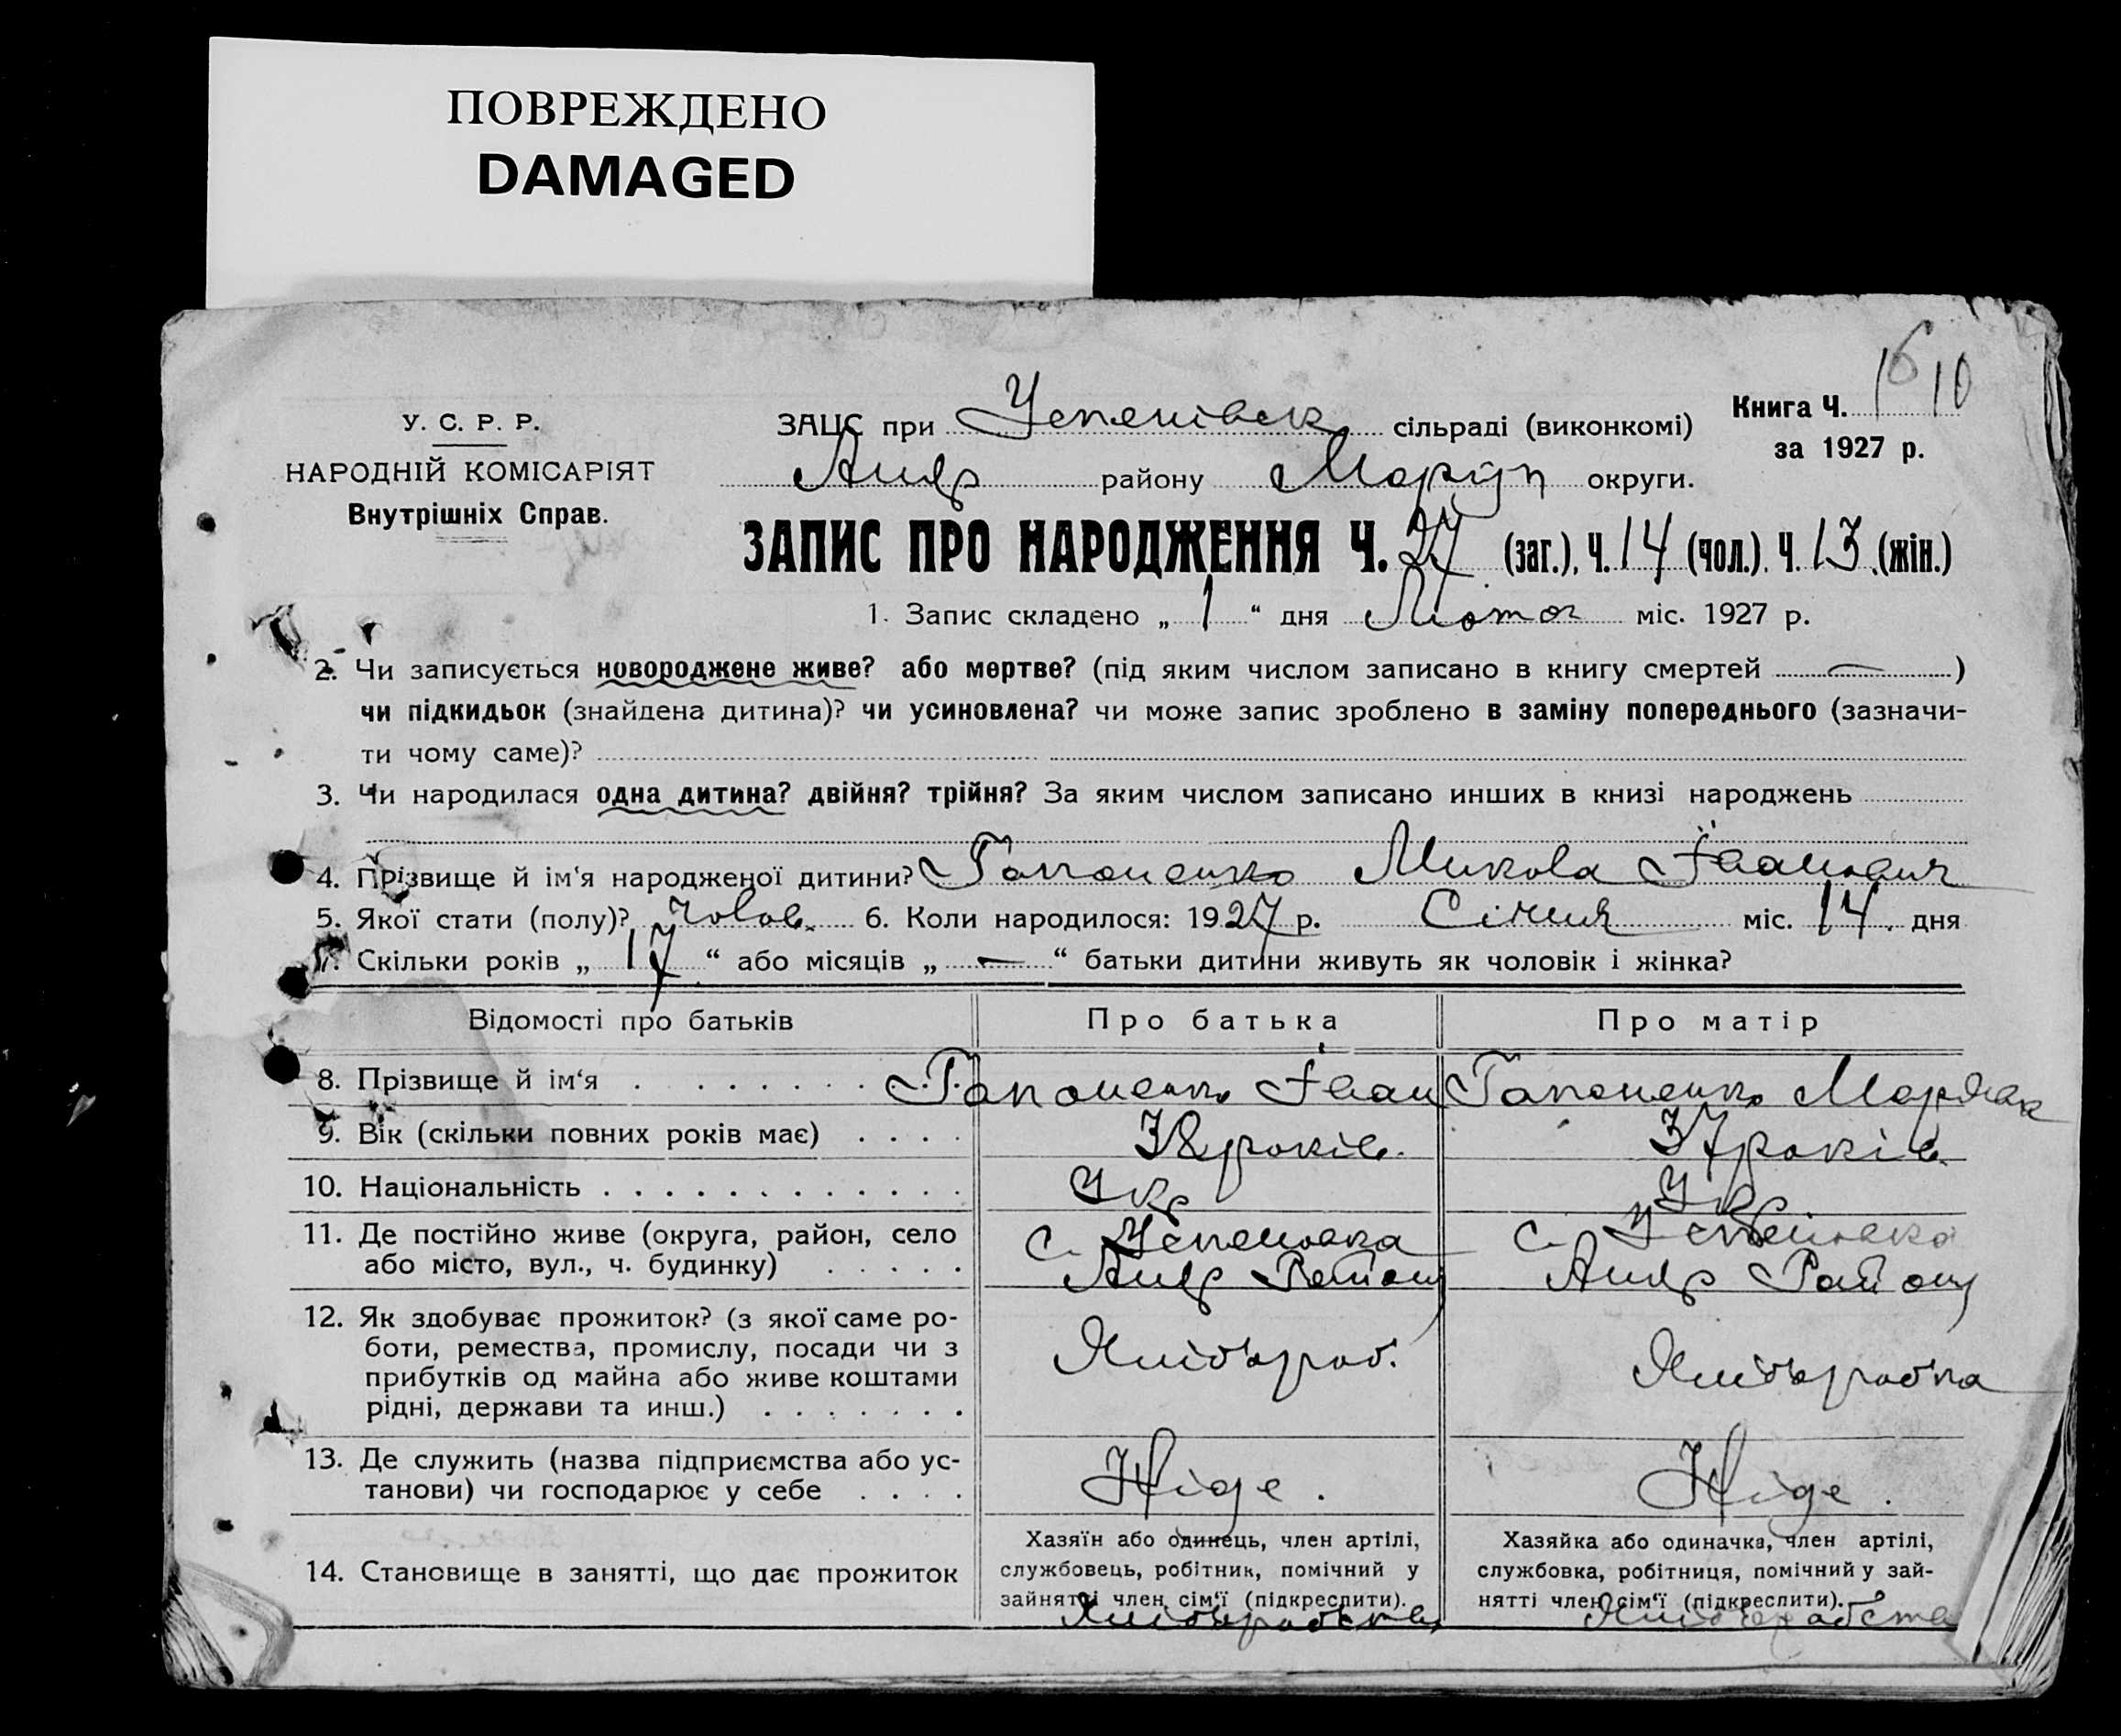 ПОВРЕЖДЕНО
DAMAGED
16 10
У. С. Р. Р.
НАРОДНІЙ КОМІСАРІЯТ
Внутрішніх Справ.
ЗАЦС при Успенівск сільраді (виконкомі)
Книга Ч.
за 1927 р.
Андр району Маріуп округи.
ЗАПИС ПРО НАРОДЖЕННЯ Ч. 27 (заг.), Ч. 14 (чол.). Ч. 13 (жін.)
1. Запис складено „ 1 “ дня Лютог міс. 1927 р.
2. Чи записується новороджене живе? або мертве? (під яким числом записано в книгу смертей — )
чи підкидьок (знайдена дитина)? чи усиновлена? чи може запис зроблено в заміну попереднього (зазначи-
ти чому саме)?
3. Чи народилася одна дитина? двійня? трійня? За яким числом записано инших в книзі народжень
4. Прізвище й ім‘я народженої дитини? Гапоненко Микола Іванович
5. Якої стати (полу)? чолов. 6. Коли народилося: 1927 р. Січня міс. 14. дня
7. Скільки років „ 17 “ або місяців „ — “ батьки дитини живуть як чоловік і жінка?
Відомості про батьків Про батька Про матір
8. Прізвище й ім‘я Гапоненко Іван Гапоненко
9. Вік (скільки повних років має) 38 років. 37 років
10. Національність Укр Укр
11. Де постійно живе (округа, район, село с. Успеновка с. Успеновка
або місто, вул., ч. будинку) Андр Району Андр Району
12. Як здобуває прожиток? (з якої саме ро-
боти, ремества, промислу, посади чи з Хлібороб. Хліборобка
прибутків од майна або живе коштами
рідні, держави та инш.)
13. Де служить (назва підприємства або ус- Ніде. Ніде.
танови) чи господарює у себе
14. Становище в занятті, що дає прожиток
Хазяїн або одинець, член артілі,
службовець, робітник, помічний у
зайнятті член сім‘ї (підкреслити).
Хліборобства
Хазяйка або одиначка, член артілі,
службовка, робітниця, помічний у зай-
нятті член сім‘ї (підкреслити).